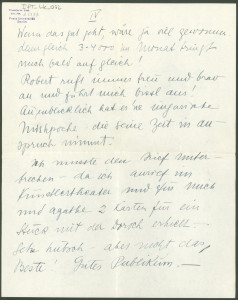 IV
Wenn das gut geht, wäre ja viel gewonnen
denn gleich 3-4000 im Monat bringt
mich bald auf gleich!
Robert ruft immer treu und brav
an und führt mich bissl aus!
Augenblicklich hat er 'ne ungarische
Mischpoche - die seine Zeit in An-
spruch nimmt.
Ich musste den Brief unter-
brechen - da ich anrief im
Künstlertheater und für mich
und Agathe 2 Karten für ein
Stück mit der Dorsch erhielt -
sehr hübsch - aber nicht das
Beste! Gutes Publikum. -